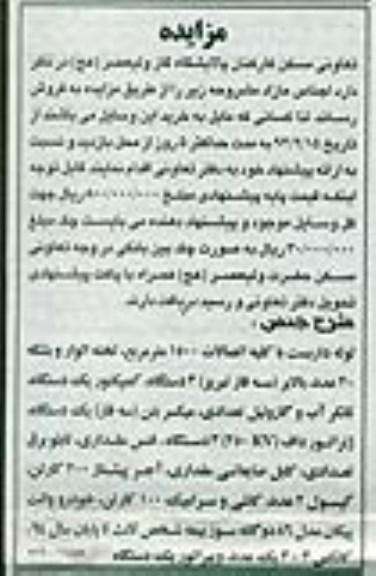 مزایده
تعاونی مسکن کارکنان پالایشگاه گاز ولیعصر (عج) در نظر
دارد اجناس مازاد مشروحه زیر را از طریق مزایده به فروش
رساند. لذا کسانی که مایل به خرید این وسایل می باشند از
تاریخ ۹۳/۹/۱۵ به مدت حداکثر ۵ روز از محل بازدید و نسبت
به ارائه پیشنهاد خود به دفتر تعاونی اقدام نمایند. قابل توجه
اینکه قیمت پایه پیشنهادی مبلغ ریال جهت
کل وسایل موجود و پیشنهاد دهنده می بایست چک مبلغ
ریال به صورت چک بین بانکی در وجه تعاونی
مسکن حضرت ولیعصر (عج) همراه با پاکت پیشنهادی
تحویل دفتر تعاونی و رسید دریافت دارند.
شرح جنس :
لوله داربست با کلیه اتصالات ۱۵۰۰ مترمربع، تخته الوار و بشکه
۳۰ عدد، بالابر (سه فاز لیری) ۲ دستگاه، کمپکتور یک دستگاه،
تانکر آب و گازوئیل تعدادی، میکسر بتن (سه فاز) یک دستگاه،
ژنراتور داف ۲ دستگاه، فنس مقداری، تابلو برق
تعدادی، کابل مقداری، آجر ۲۰۰ کارتن،
کپسول ۲ عدد، کاشی و سرامیک ۱۰۰ کارتن، خودرو وانت
پیکان مدل ۸۶ دوگانه سوز بیمه شخص ثالث تا پایان سال ۹۴،
یک عدد، یک دستگاه